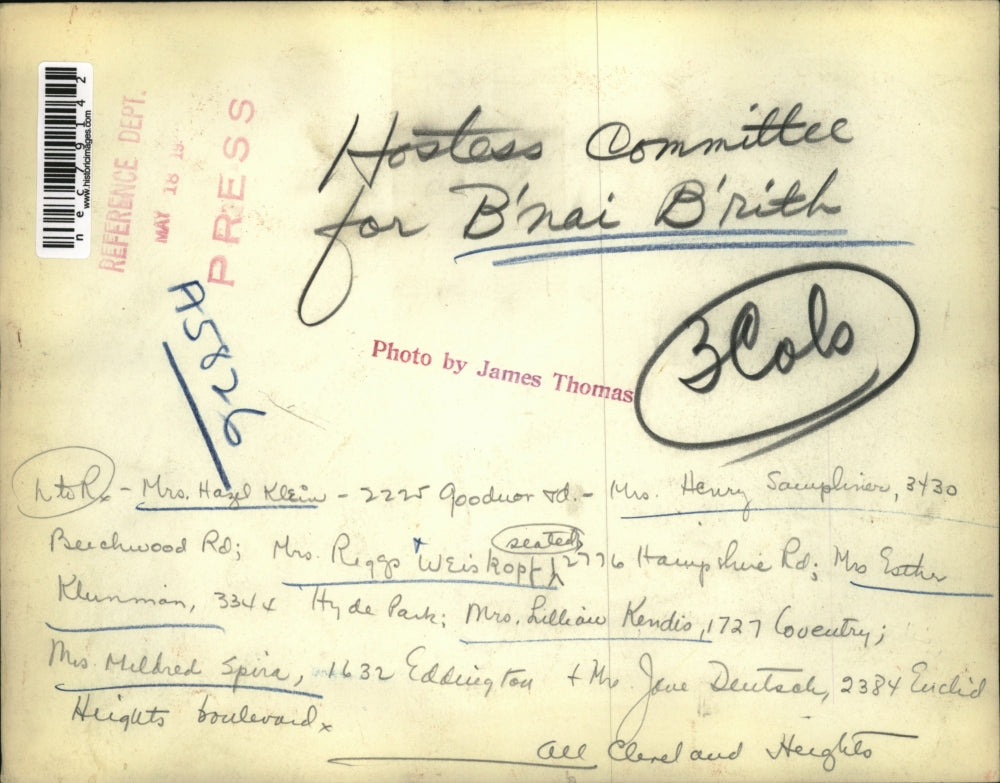 nec79142
www.historicimages.com
REFERENCE DEPT.
MAY 18 19
PRESS
Hostess Committee
for B'nai B'rith
H5826
3 Cols
Photo by James Thomas
L to R - Mrs. Hazel Klein - 2225 Goodnor rd. - Mrs. Henry Sampliner, 3430
Beechwood Rd; Mrs. Riggs Weiskopf (seated) 2776 Hampshire Rd; Mrs Esther
Klunman, 3344 Hyde Park; Mrs. Lillian Kendis, 1727 Coventry;
Mrs. Mildred Spira, 1632 Eddington + Mrs. Jane Deutsch, 2384 Euclid
Heights boulevard x
All Cleveland Heights